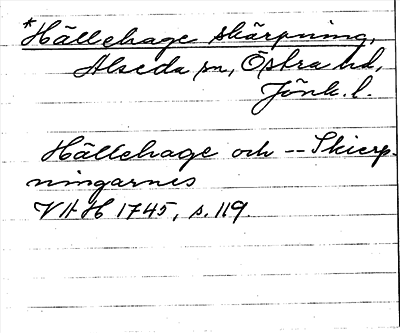 *Hällehage skärpning,
Alseda sn, Östra hd,
Jönk. l.
Hällehage och -- Skierp-
ningarnes
VHH 1745, s. 119.